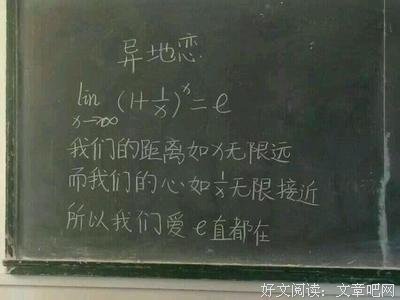 异地恋
lim (1+1/x)^x = e
x→∞
我们的距离如x无限远
而我们的心如1/x无限接近
所以我们爱e直都在
好文阅读：文章吧网